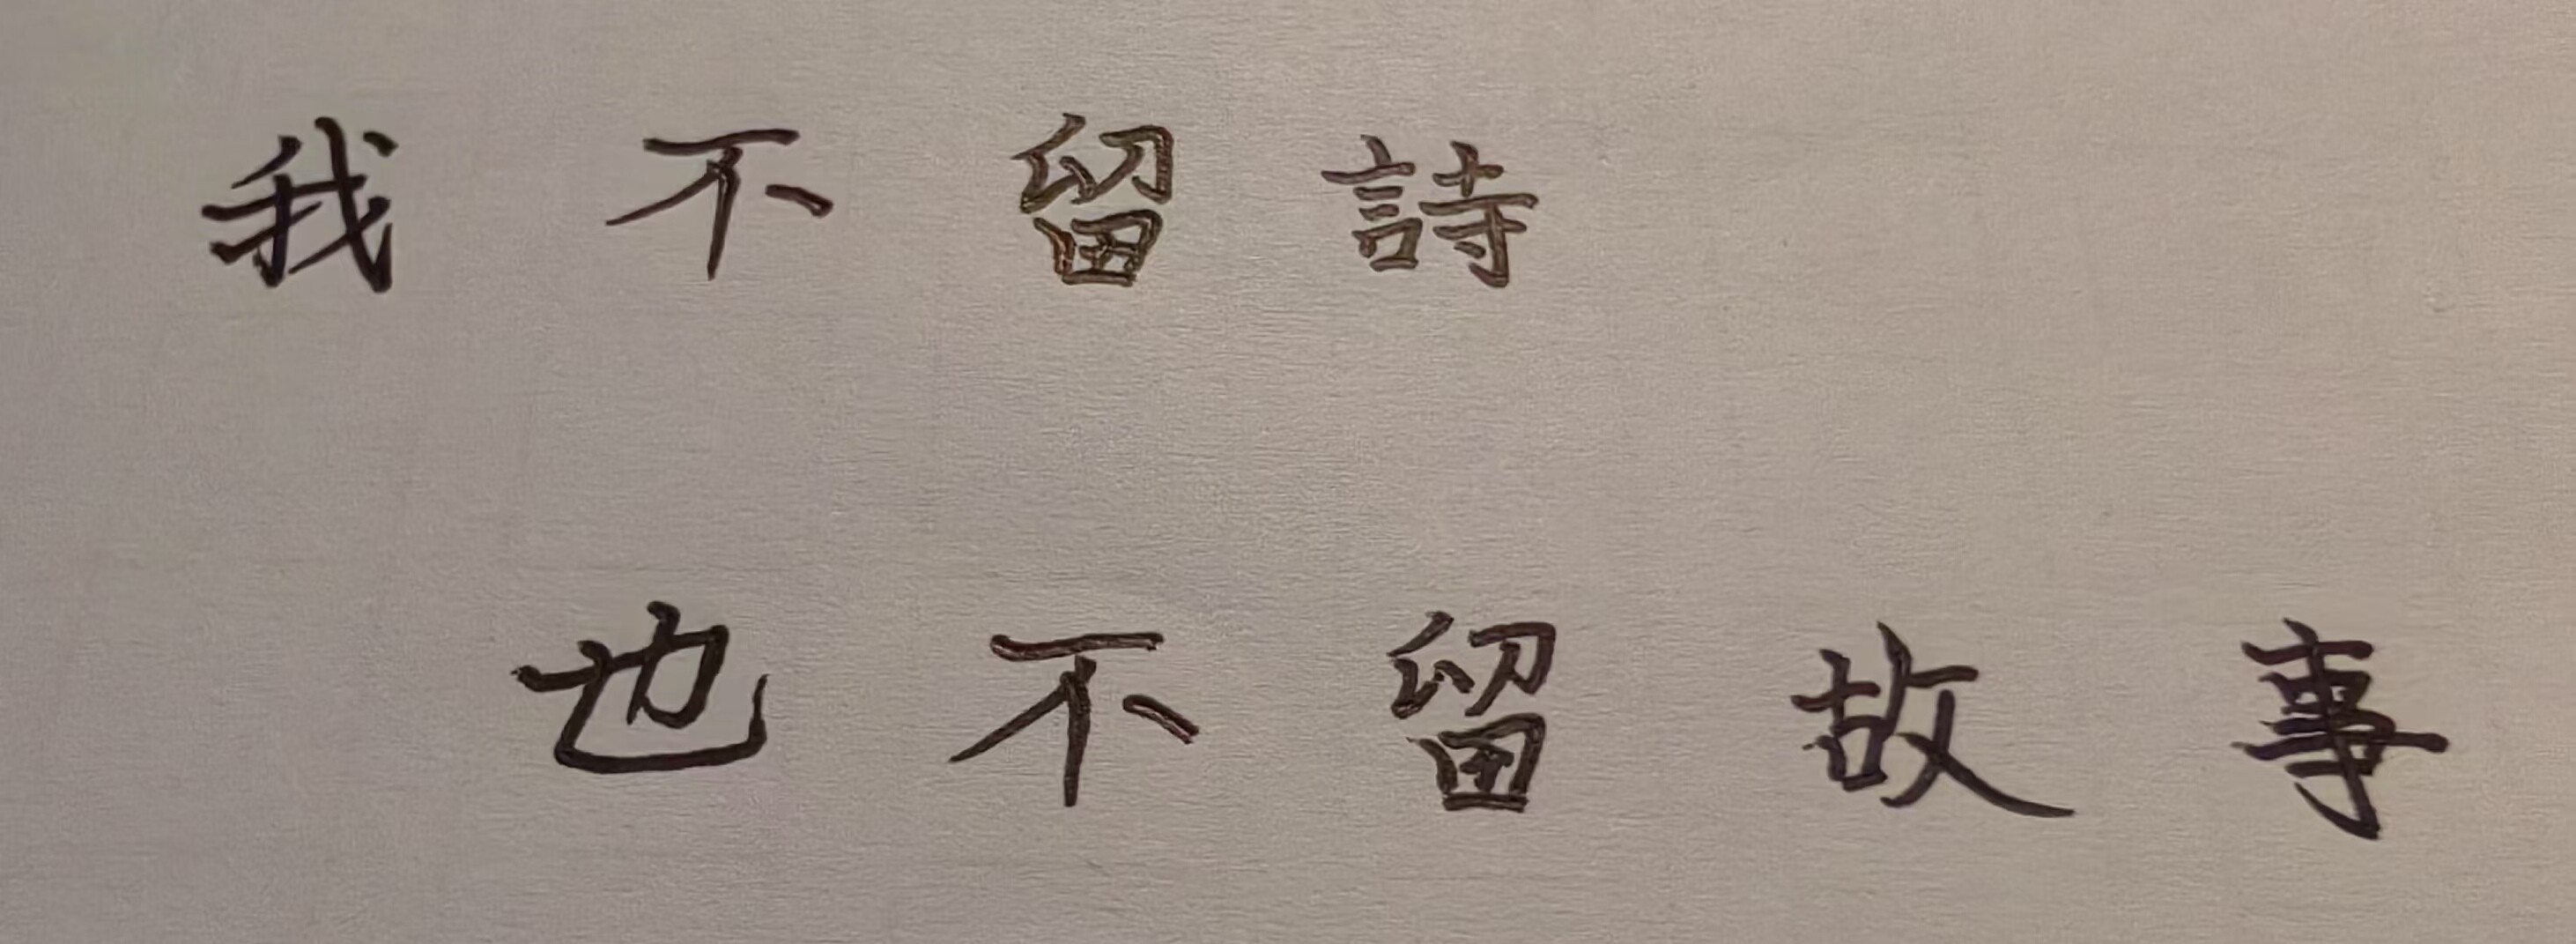 我不留詩
也不留故事